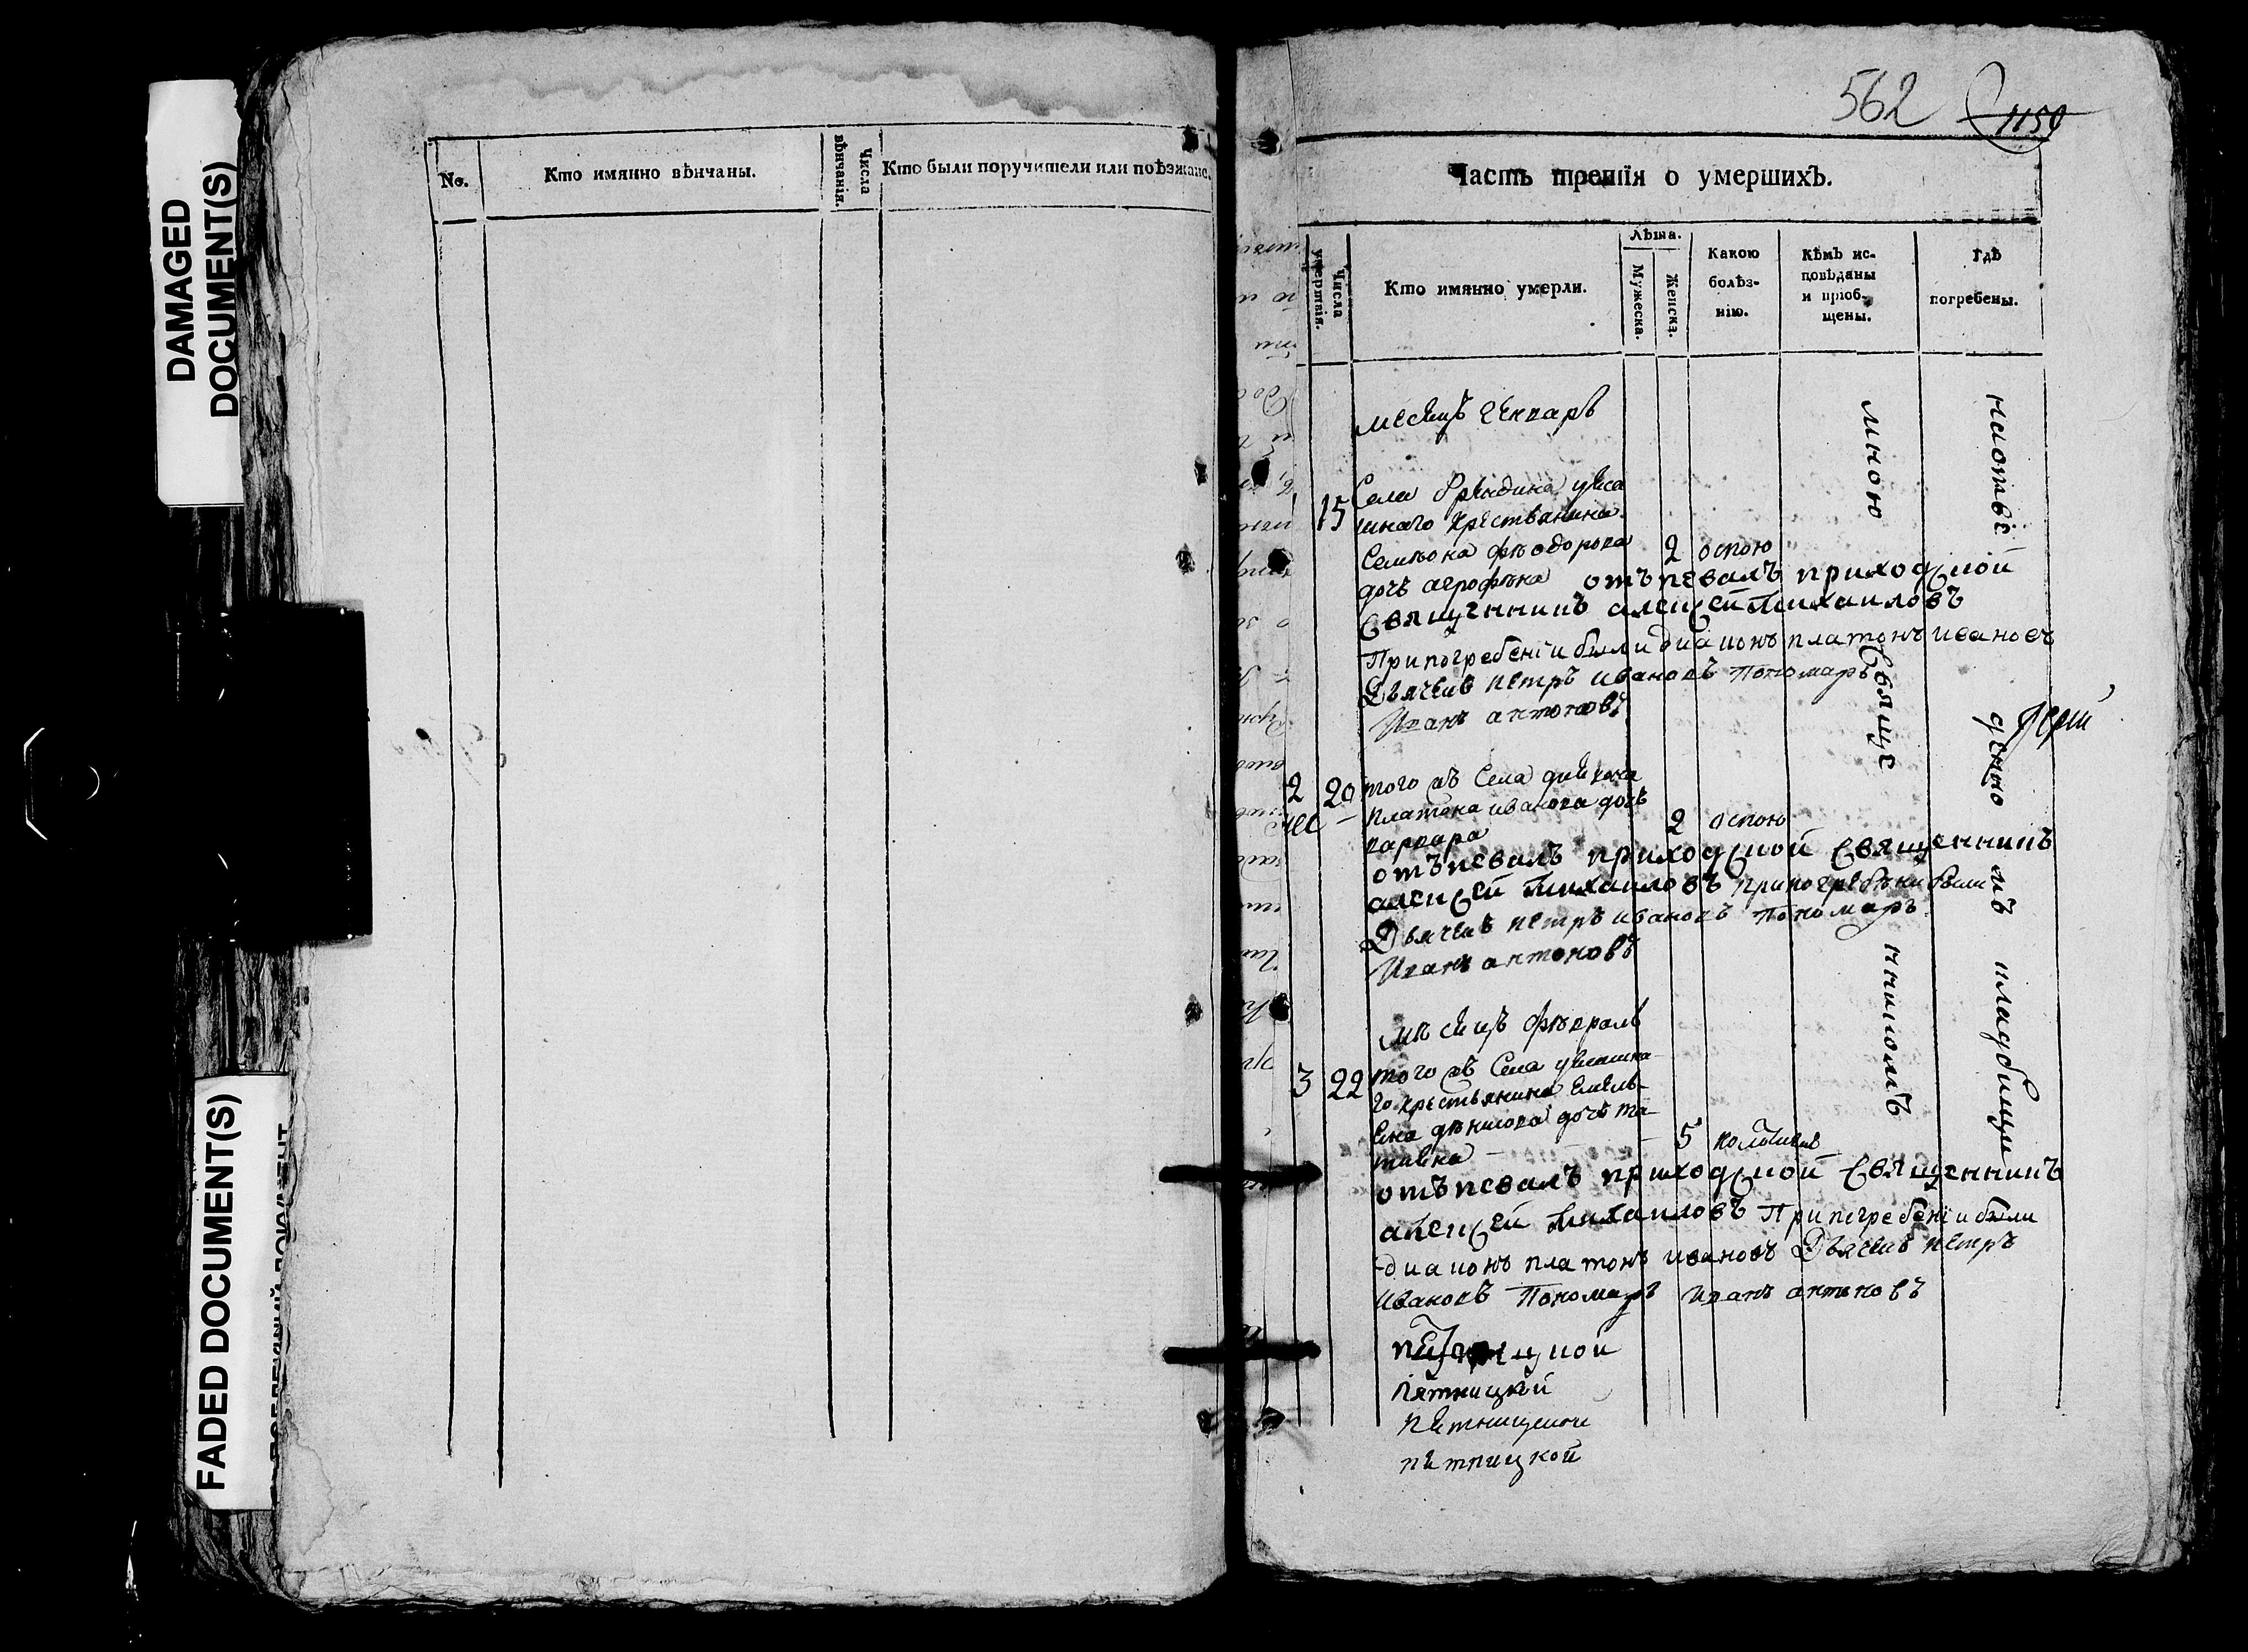 DAMAGED
DOCUMENT(S)
FADED DOCUMENT(S)
No.
Кто имянно вѣнчаны.
Числа
вѣнчанія.
Кто были поручители или поѣзжане.
562
1159
Часть третія о умершихъ.
Числа
умертвія.
Кто имянно умерли.
Лѣта.
Мужеска.
Женска.
Какою
болѣз-
нію.
Кѣмъ ис-
повѣданы
и пріоб-
щены.
Гдѣ
погребены.
месяцъ генварь
15 Села
шнаго крестьянина
Семиона фѣодорова
дочь агрофѣна 2 оспою
отъпевалъ приходской
Священникъ алексей михаиловъ
При погребеніи были диаконъ платонъ ивановъ
Дьячекъ петръ ивановъ Пономарь
Иванъ антоновъ
2 20 того жъ Села диякона
Платона иванова дочь
варвара 2 оспою
отъпевалъ приходской Священникъ
алексей михаиловъ при погребени были
Дьячекъ петръ ивановъ Пономарь
Иванъ антоновъ
мѣсяцъ фѣвраль
3 22 того жъ Села
го крестьянина Емель-
яна дѣнисова дочь та-
тияна 5
отъпевалъ приходской Священникъ
алексей михаиловъ При погребеніи были
диаконъ платонъ ивановъ Дьячекъ петръ
Ивановъ Пономарь Иванъ антоновъ
мною
Свяще
нникомъ
на отве
дѣнно
мъ
кладбищи
Пятницкой
пятницкой